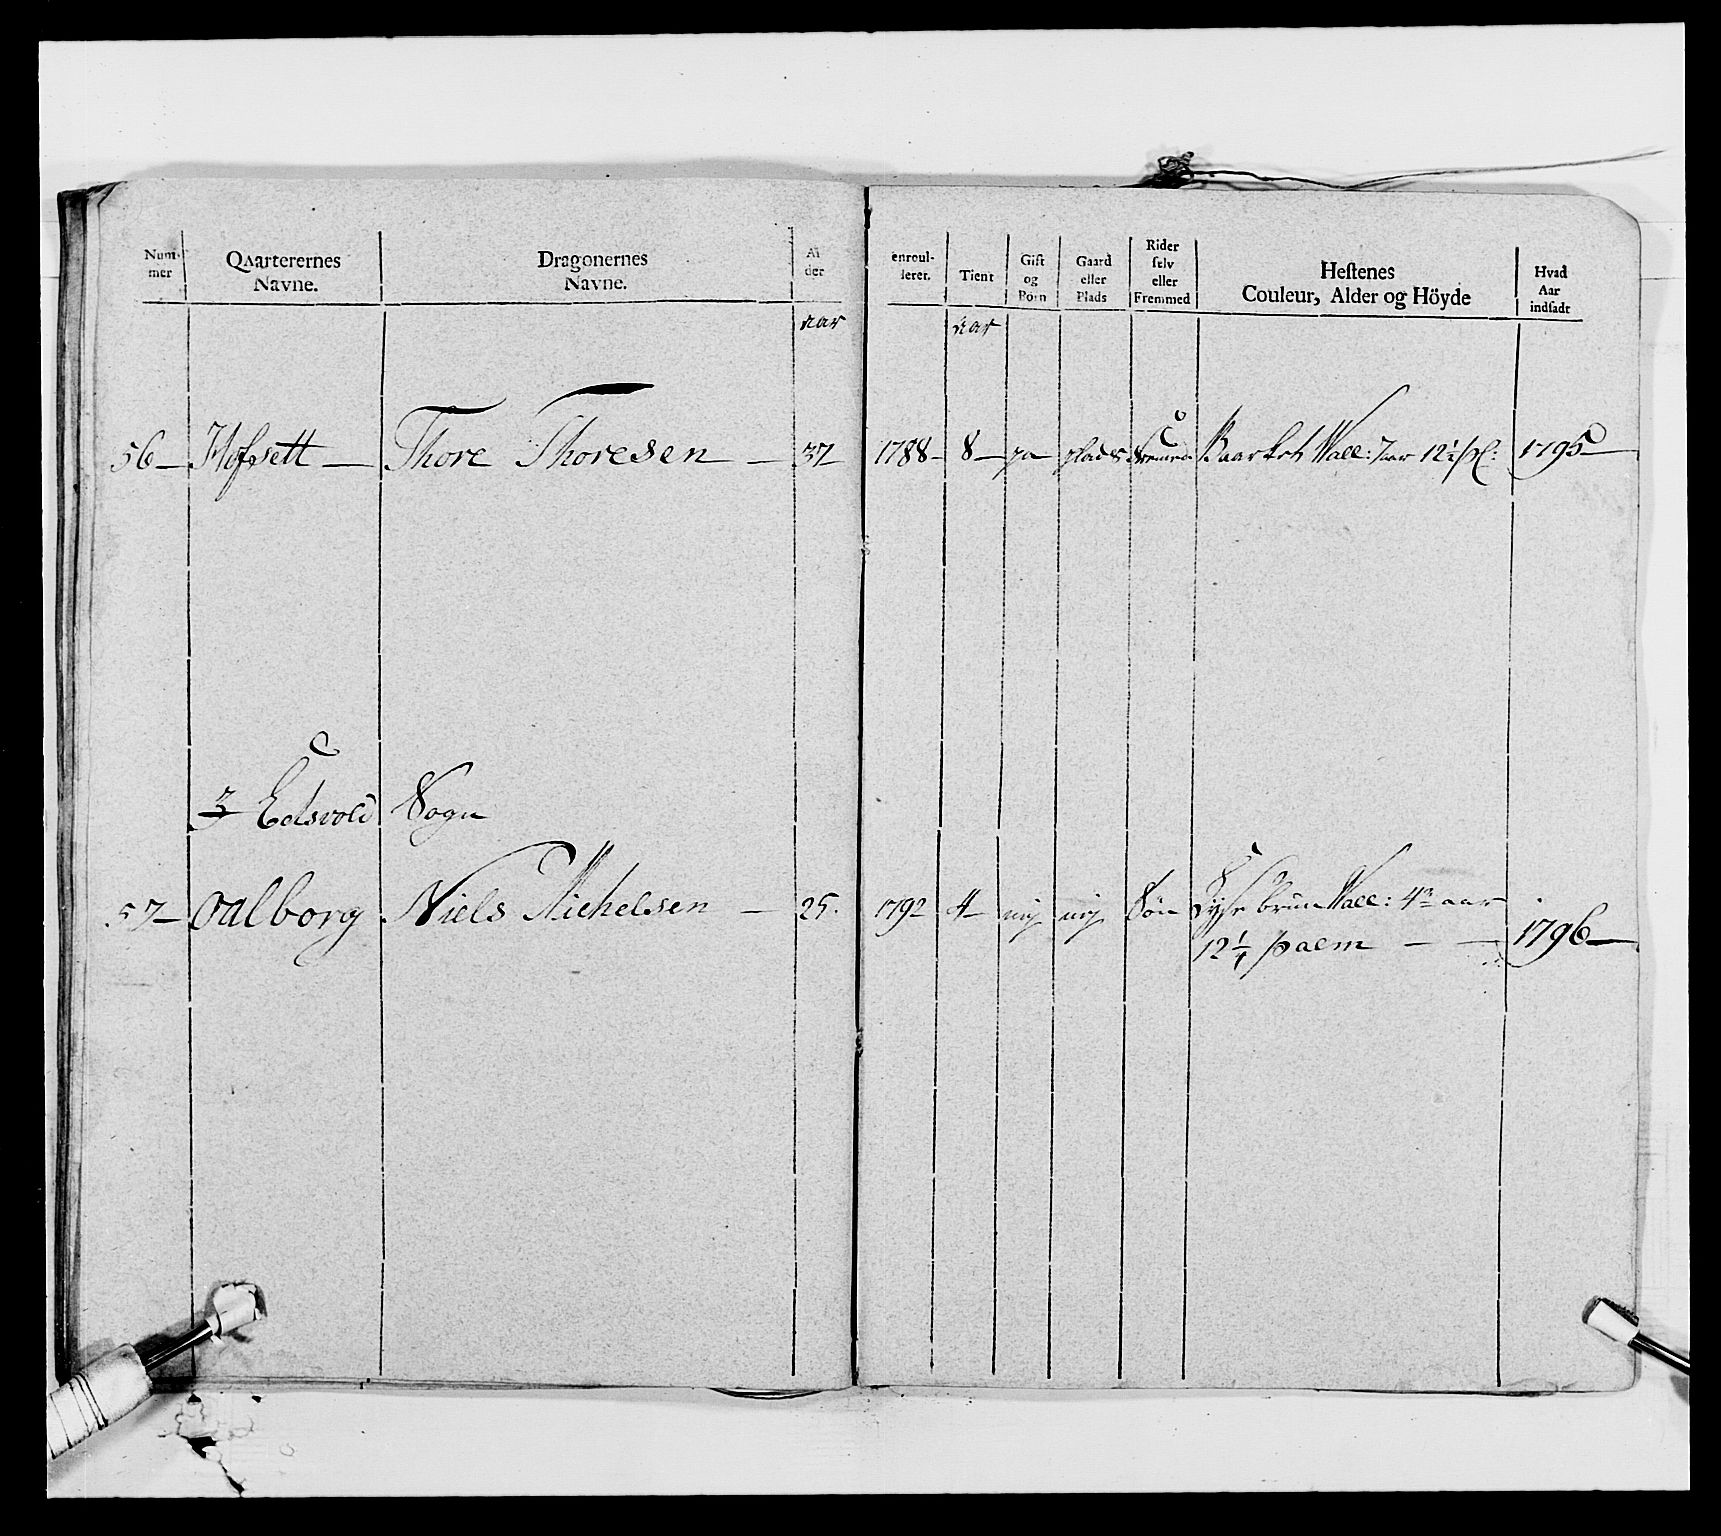 Num-mer Qvarterernes Navne. Dragonernes Navne. Al der enroul-leret. Tient Gift og Börn Gaard eller Plads Rider selv eller Fremmed Hestenes Couleur, Alder og Höyde Hvad Aar indsadt
aar aar
56 Hofsett Thore Thoresen 37 1788 8 ja plads fremed Wall: 7 aar 12 1/4 pl: 1795
3 Eidsvold Sogn
57 Dalborg Niels Michelsen 25. 1792 4 nij nij Søn Lyse brun Wall: 4 aar
12 1/4 palm 1796